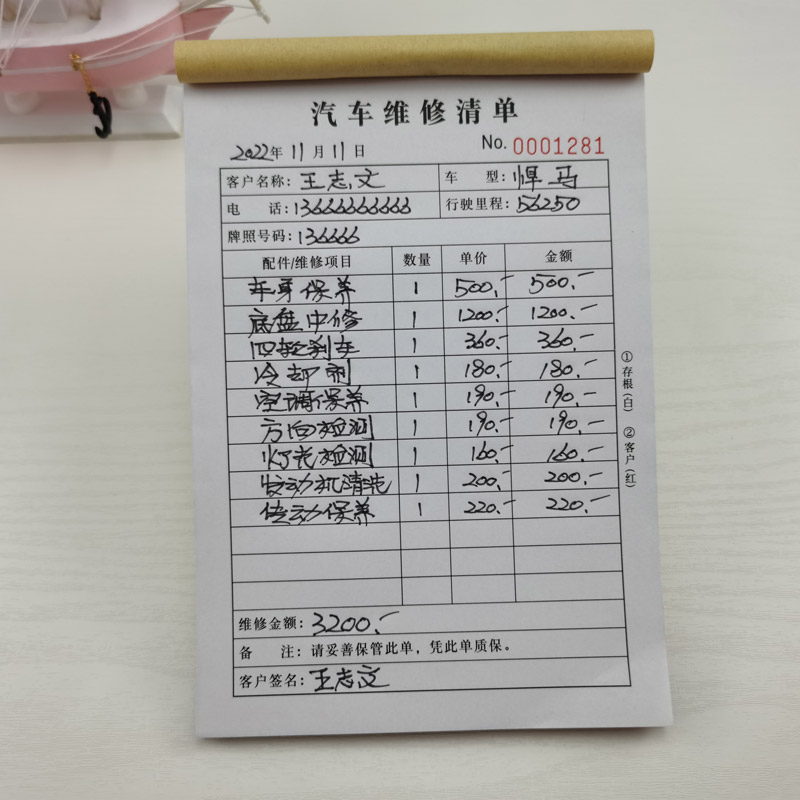 汽车维修清单
2022年11月11日 No. 0001281
客户名称：王志文 车 型：悍马
电 话：13666666666 行驶里程：56250
牌照号码：136666
配件/维修项目 数量 单价 金额
车身保养 1 500.- 500.-
底盘中修 1 1200.- 1200.-
四轮刹车 1 360.- 360.-
冷却剂 1 180.- 180.-
空调保养 1 190.- 190.-
方向检测 1 190.- 190.-
灯光检测 1 160.- 160.-
发动机清洗 1 200.- 200.-
传动保养 1 220.- 220.-
维修金额：3200.-
备 注：请妥善保管此单，凭此单质保。
客户签名：王志文
①存根（白） ②客户（红）